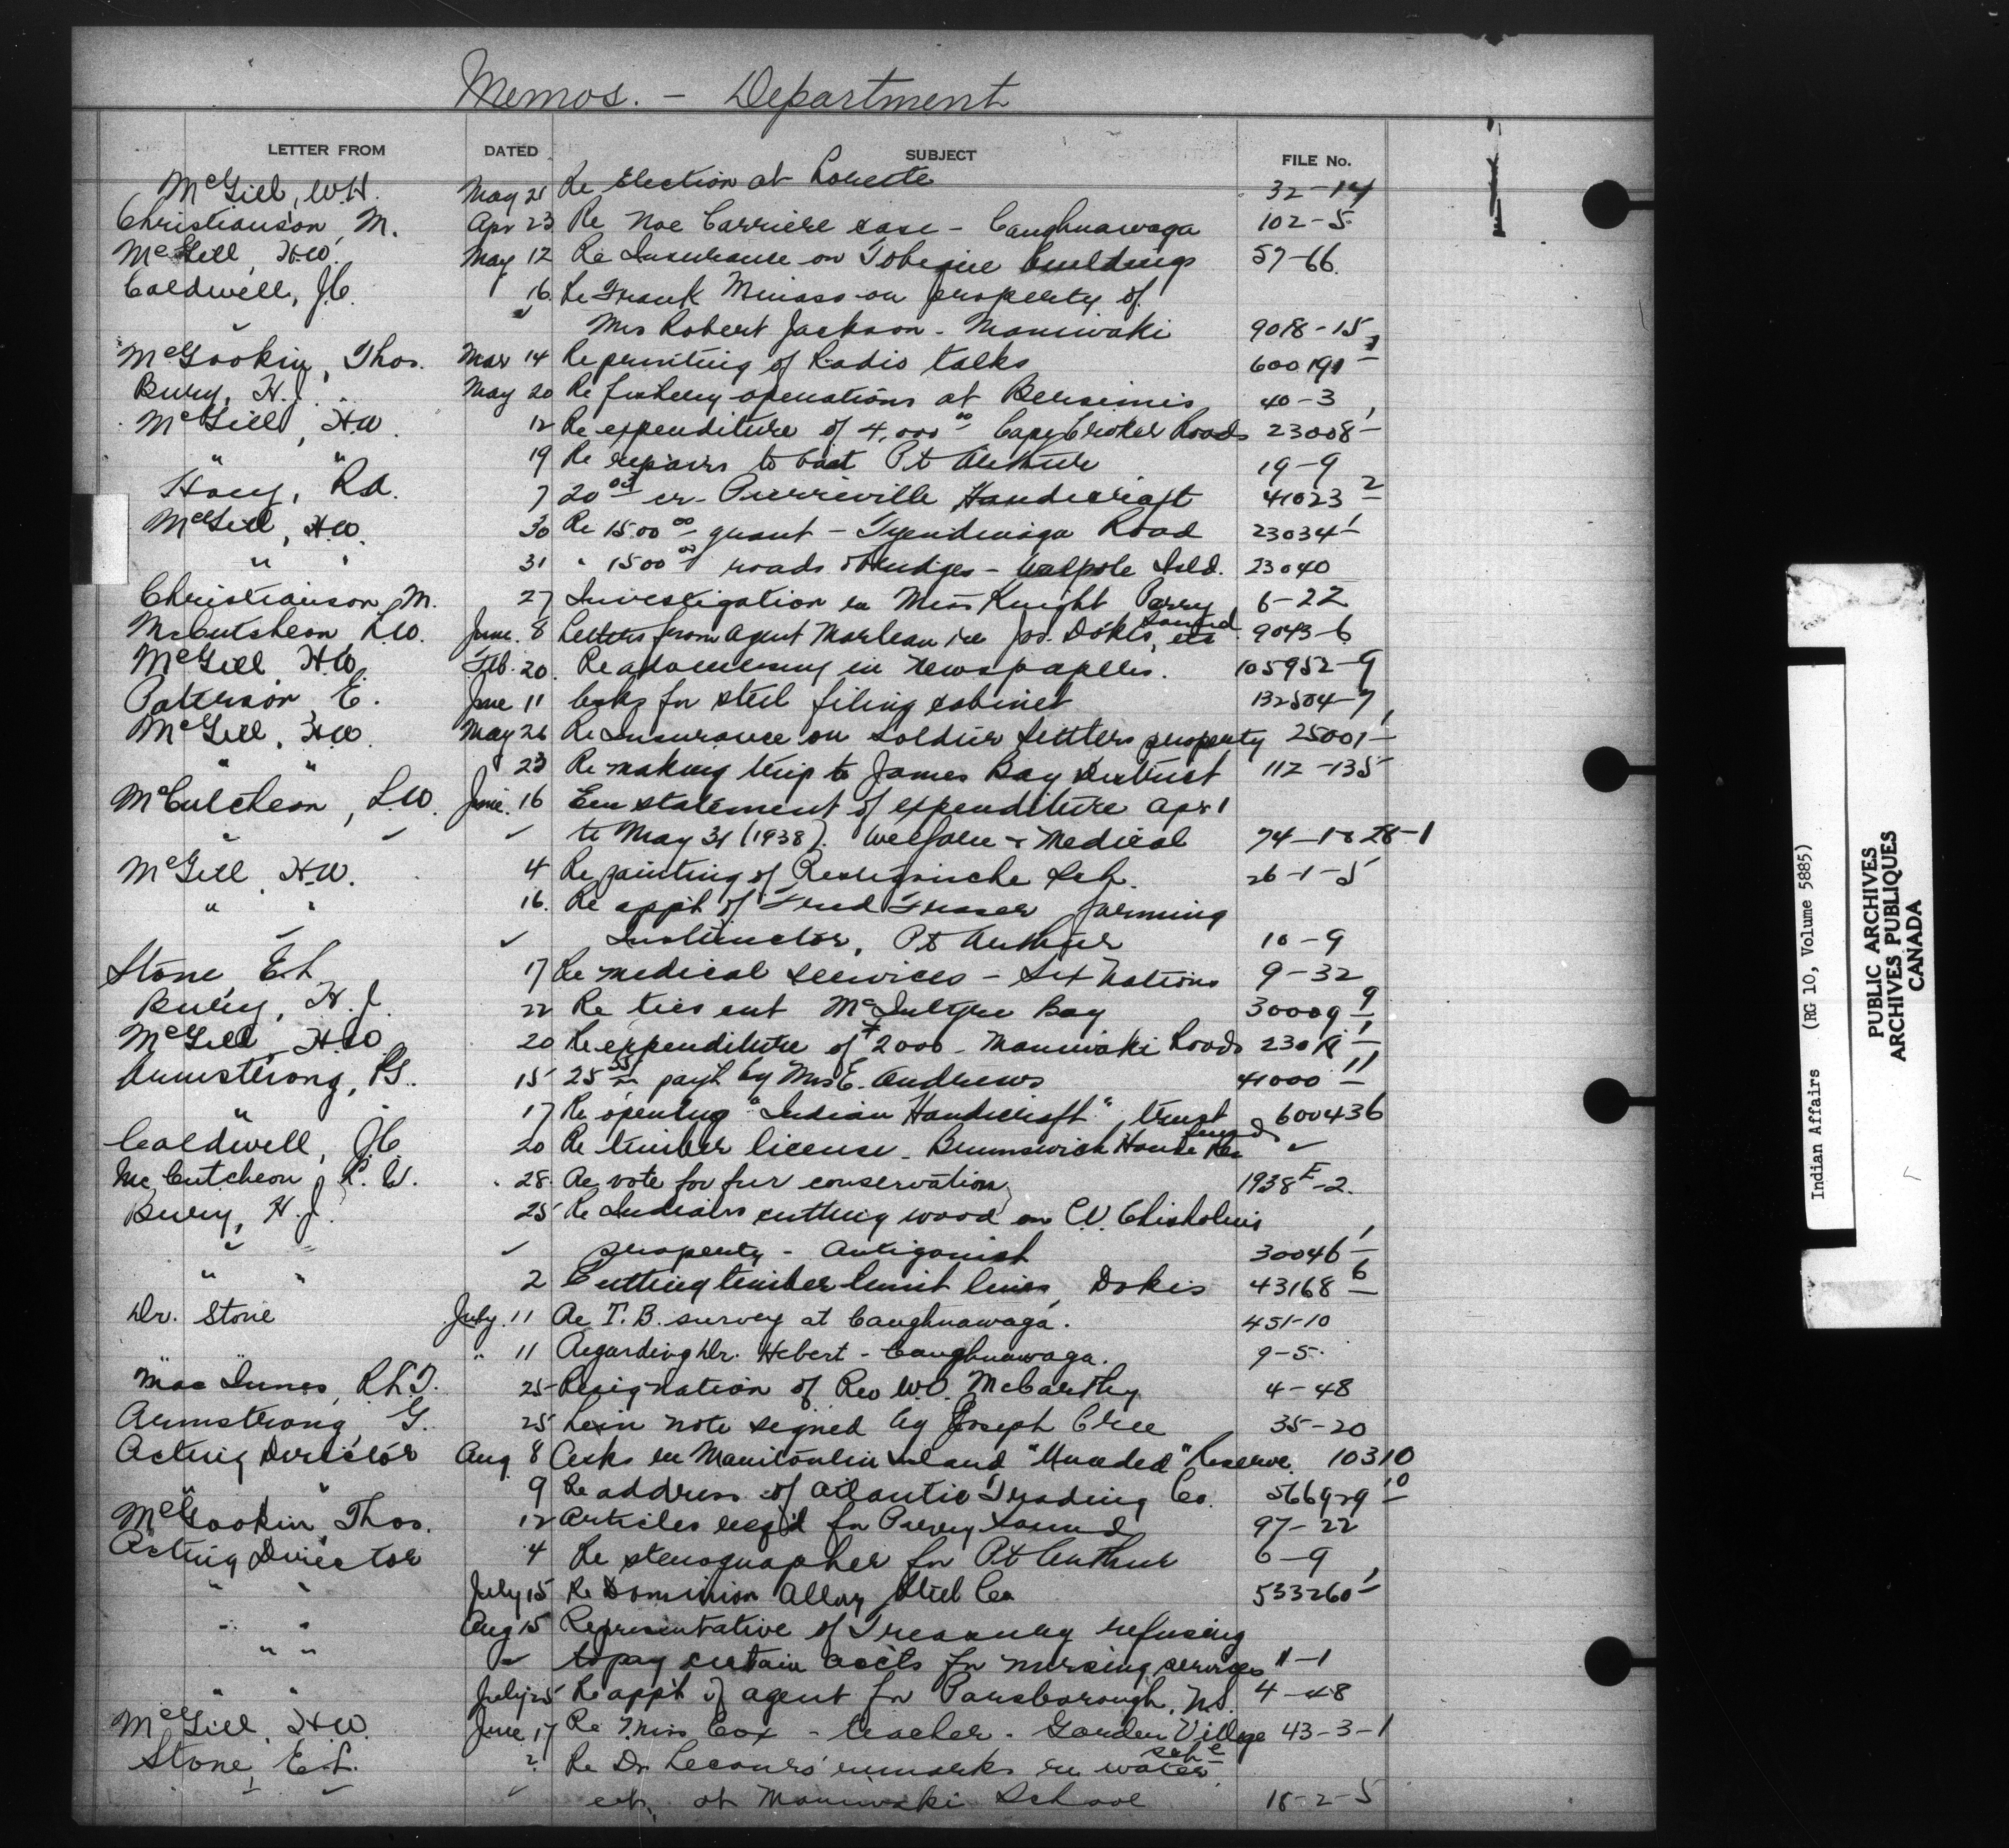 Memos. - Department
LETTER FROM DATED SUBJECT FILE No.
McGill, W.H. May 21 Re Election at Lorette 32-14
Christianson, M. Apr 23 Re Noe Carriere case - Caughnawaga 102-5
McGill, H.W. May 12 Re Insurance on Tobique buildings 57-66
Caldwell, J.C. " 16 Re Frank on property of
Mrs Robert Jackson - Maniwaki 9018-15
McGookin, Thos. Mar 14 Re printing of Radio talks 600191-1
Bury, H.J. May 20 Re fishery operations at Bersimis 40-3
McGill, H.W. 12 Re expenditure of 4,000 00 Cape Croker Roads 23008-1
" " 19 Re repairs to boat Pt Arthur 19-9
Hoey, R.A. 7 20 03 cr - Pierreville Handicraft 41023-2
McGill, H.W. 30 Re 1500 00 grant - Tyendinaga Road 23034-1
" " 31 " 1500 00 roads & bridges - Walpole Isld. 23040
Christianson, M. 27 Investigation re Miss Knight Parry Sound 6-22
McCutcheon L.W. June 8 Letters from Agent Marleau re Jos. Dokis, etc 9043-6
McGill H.W. Feb. 20 Re advertising in newspapers. 105952-9
Patterson E. June 11 Asks for steel filing cabinet 132504-7
McGill, H.W. May 26 Re Insurance on Soldier Settlers property 25001-1
" " 23 Re making trip to James Bay District 112-135
McCutcheon, L.W. June 16 Enc statement of expenditure Apr 1
" ✓ ✓ to May 31 (1938). Welfare & Medical 74-1 & 28-1
McGill, H.W. 4 Re painting of Restigouche Sch. 26-1-5
" " 16. Re appt of Fred Fraser farming
✓ ✓ Instructor, Pt Arthur 10-9
Stone E.L. 17 Re medical services - Six Nations 9-32
Bury, H.J. 22 Re ties cut McIntyre Bay 30009-9
McGill, H.W. 20 Re expenditure of $2000 - Maniwaki Roads
Armstrong, 15 25 pay't by Mrs E. Andrews 41000-11
" " 17 Re opening "Indian Handicraft" trust 600436
Caldwell, J.C. 20 Re timber license - Brunswick House Res ✓
McCutcheon, L.W. 28. Re vote for fur conservation 1938F-2.
Bury, H.J. 25 Re Indians cutting wood on C.V. Chisholm's
" " ✓ property - Antigonish 30046-1
" " 2 Cutting timber limit lines, Dokis 43168-6
Dr. Stone July 11 Re T.B. survey at Caughnawaga. 451-10
" " 11 Regarding Dr. Hebert - Caughnawaga. 9-5.
MacInnes, 25 Resignation of Rev W.O. McCarthy 4-48
Armstrong, G. 25 Lien note signed by Joseph Cree 35-20
Acting Director Aug 8 Asks re Manitoulin Island "Unceded" Reserve 10310
" " 9 Re address of Atlantic Trading Co. 566929-10
McGookin, Thos. 12 Articles req'd for Parry Sound 97-22
Acting Director 4 Re stenographer for Pt Arthur 6-9
" " July 15 Re Dominion Alloy Steel Co 533260-1
" " Aug 15 Representative of Treasury refusing
" " ✓ to pay certain accts for nursing services 11-1
" " July 25 Re app't of agent for Parsborough, N.S. 4-48
McGill, H.W. June 17 Re Miss Cox - teacher - Garden Village 43-3-1
Stone, E.L. Re Dr Lecours' remarks re water
✓ ✓ etc. at Maniwaki School 18-2-5
Indian Affairs (RG 10, Volume 5885)
PUBLIC ARCHIVES
ARCHIVES PUBLIQUES
CANADA